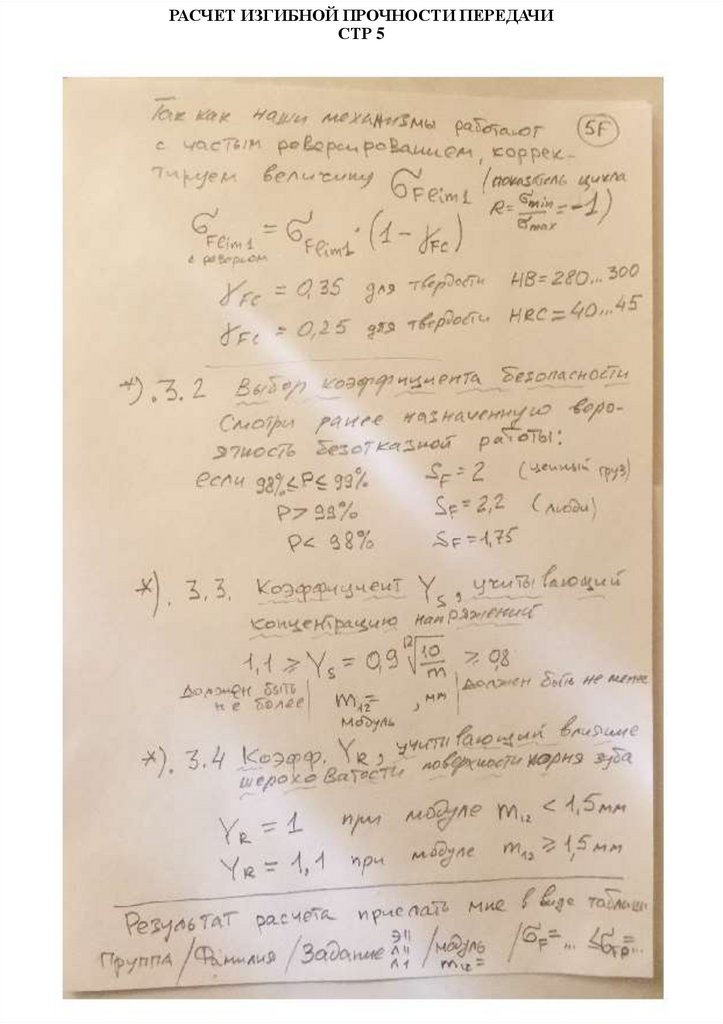 РАСЧЕТ ИЗГИБНОЙ ПРОЧНОСТИ ПЕРЕДАЧИ
СТР 5
5F
Так как наши механизмы работают
с частым реверсированием, коррек-
тируем величину σFlim1 (показатель цикла
R = σmin/σmax = -1)
σFlim1 = σFlim1 · (1 - γFc)
с реверсом
γFc = 0,35 для твердости HB = 280...300
γFc = 0,25 для твердости HRC = 40...45
*). 3.2 Выбор коэффициента безопасности
Смотри ранее назначенную веро-
ятность безотказной работы:
если 98% ≤ P ≤ 99% SF = 2 (ценный груз)
P > 99% SF = 2,2 (люди)
P < 98% SF = 1,75
*). 3.3. Коэффициент YS, учитывающий
концентрацию напряжений
1,1 ≥ YS = 0,9 ¹²√(10/m) ≥ 0,8
должен быть не более | m12 = , мм | должен быть не менее
модуль
*). 3.4 Коэфф. YR, учитывающий влияние
шероховатости поверхности корня зуба
YR = 1 при модуле m12 < 1,5 мм
YR = 1,1 при модуле m12 ≥ 1,5 мм
Результат расчета прислать мне в виде таблицы
Группа / Фамилия / Задание / модуль m12 = / σF = ... ≤ σFP = ...